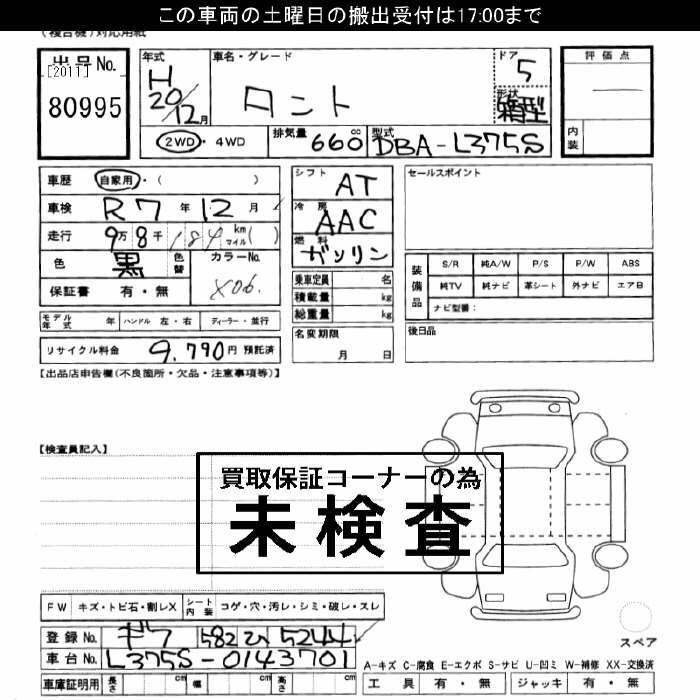 この車両の土曜日の搬出受付は17:00まで
(複合機)対応用紙
出品No. [2011] 80995
年式 H20/12月 車名・グレード タント ドア 5 形状 箱型
2WD・4WD 排気量 660cc 型式 DBA-L375S
評価点
内装
車歴 自家用・( )
車検 R7年12月
走行 9万8千184km マイル( )
色 黒 色替 カラーNo. X06
保証書 有・無
シフト AT
冷房 AAC
燃料 ガソリン
乗車定員 名
積載量 kg
総重量 kg
セールスポイント
装備品 S/R 純A/W P/S P/W ABS
純TV 純ナビ 革シート 外ナビ エアB
ナビ型番:
モデル年式 年 ハンドル 左・右 ディーラー・並行
名変期限 月 日
後日品
リサイクル料金 9,790円 預託済
【出品店申告欄(不良箇所・欠品・注意事項等)】
【検査員記入】
買取保証コーナーの為
未検査
FW キズ・トビ石・割レX シート内装 コゲ・穴・汚レ・シミ・破レ・スレ
スペア
登録No. ギフ 582 い 5244
車台No. L375S-0143701
A-キズ C-腐食 E-エクボ S-サビ U-凹ミ W-補修 XX-交換済
車庫証明用 長さ cm 幅 cm 高さ cm
工具 有・無 ジャッキ 有・無